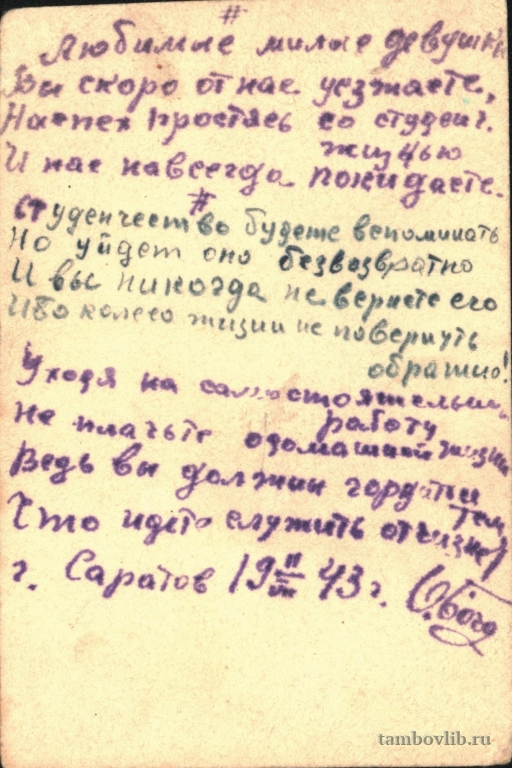 #
Любимые милые девушки
Вы скоро от нас уезжаете,
Наспех простясь со студенч.
жизнью
И нас навсегда покидаете.
#
Студенчество будете вспоминать
Но уйдет оно безвозвратно
И вы никогда не вернете его
Ибо колесо жизни не повернуть
обратно!
Уходя на самостоятельную
работу
Не плачьте о домашней жизни
Ведь вы должны гордиться
тем
Что идете служить отчизне!
г. Саратов 19 43 г.
tambovlib.ru